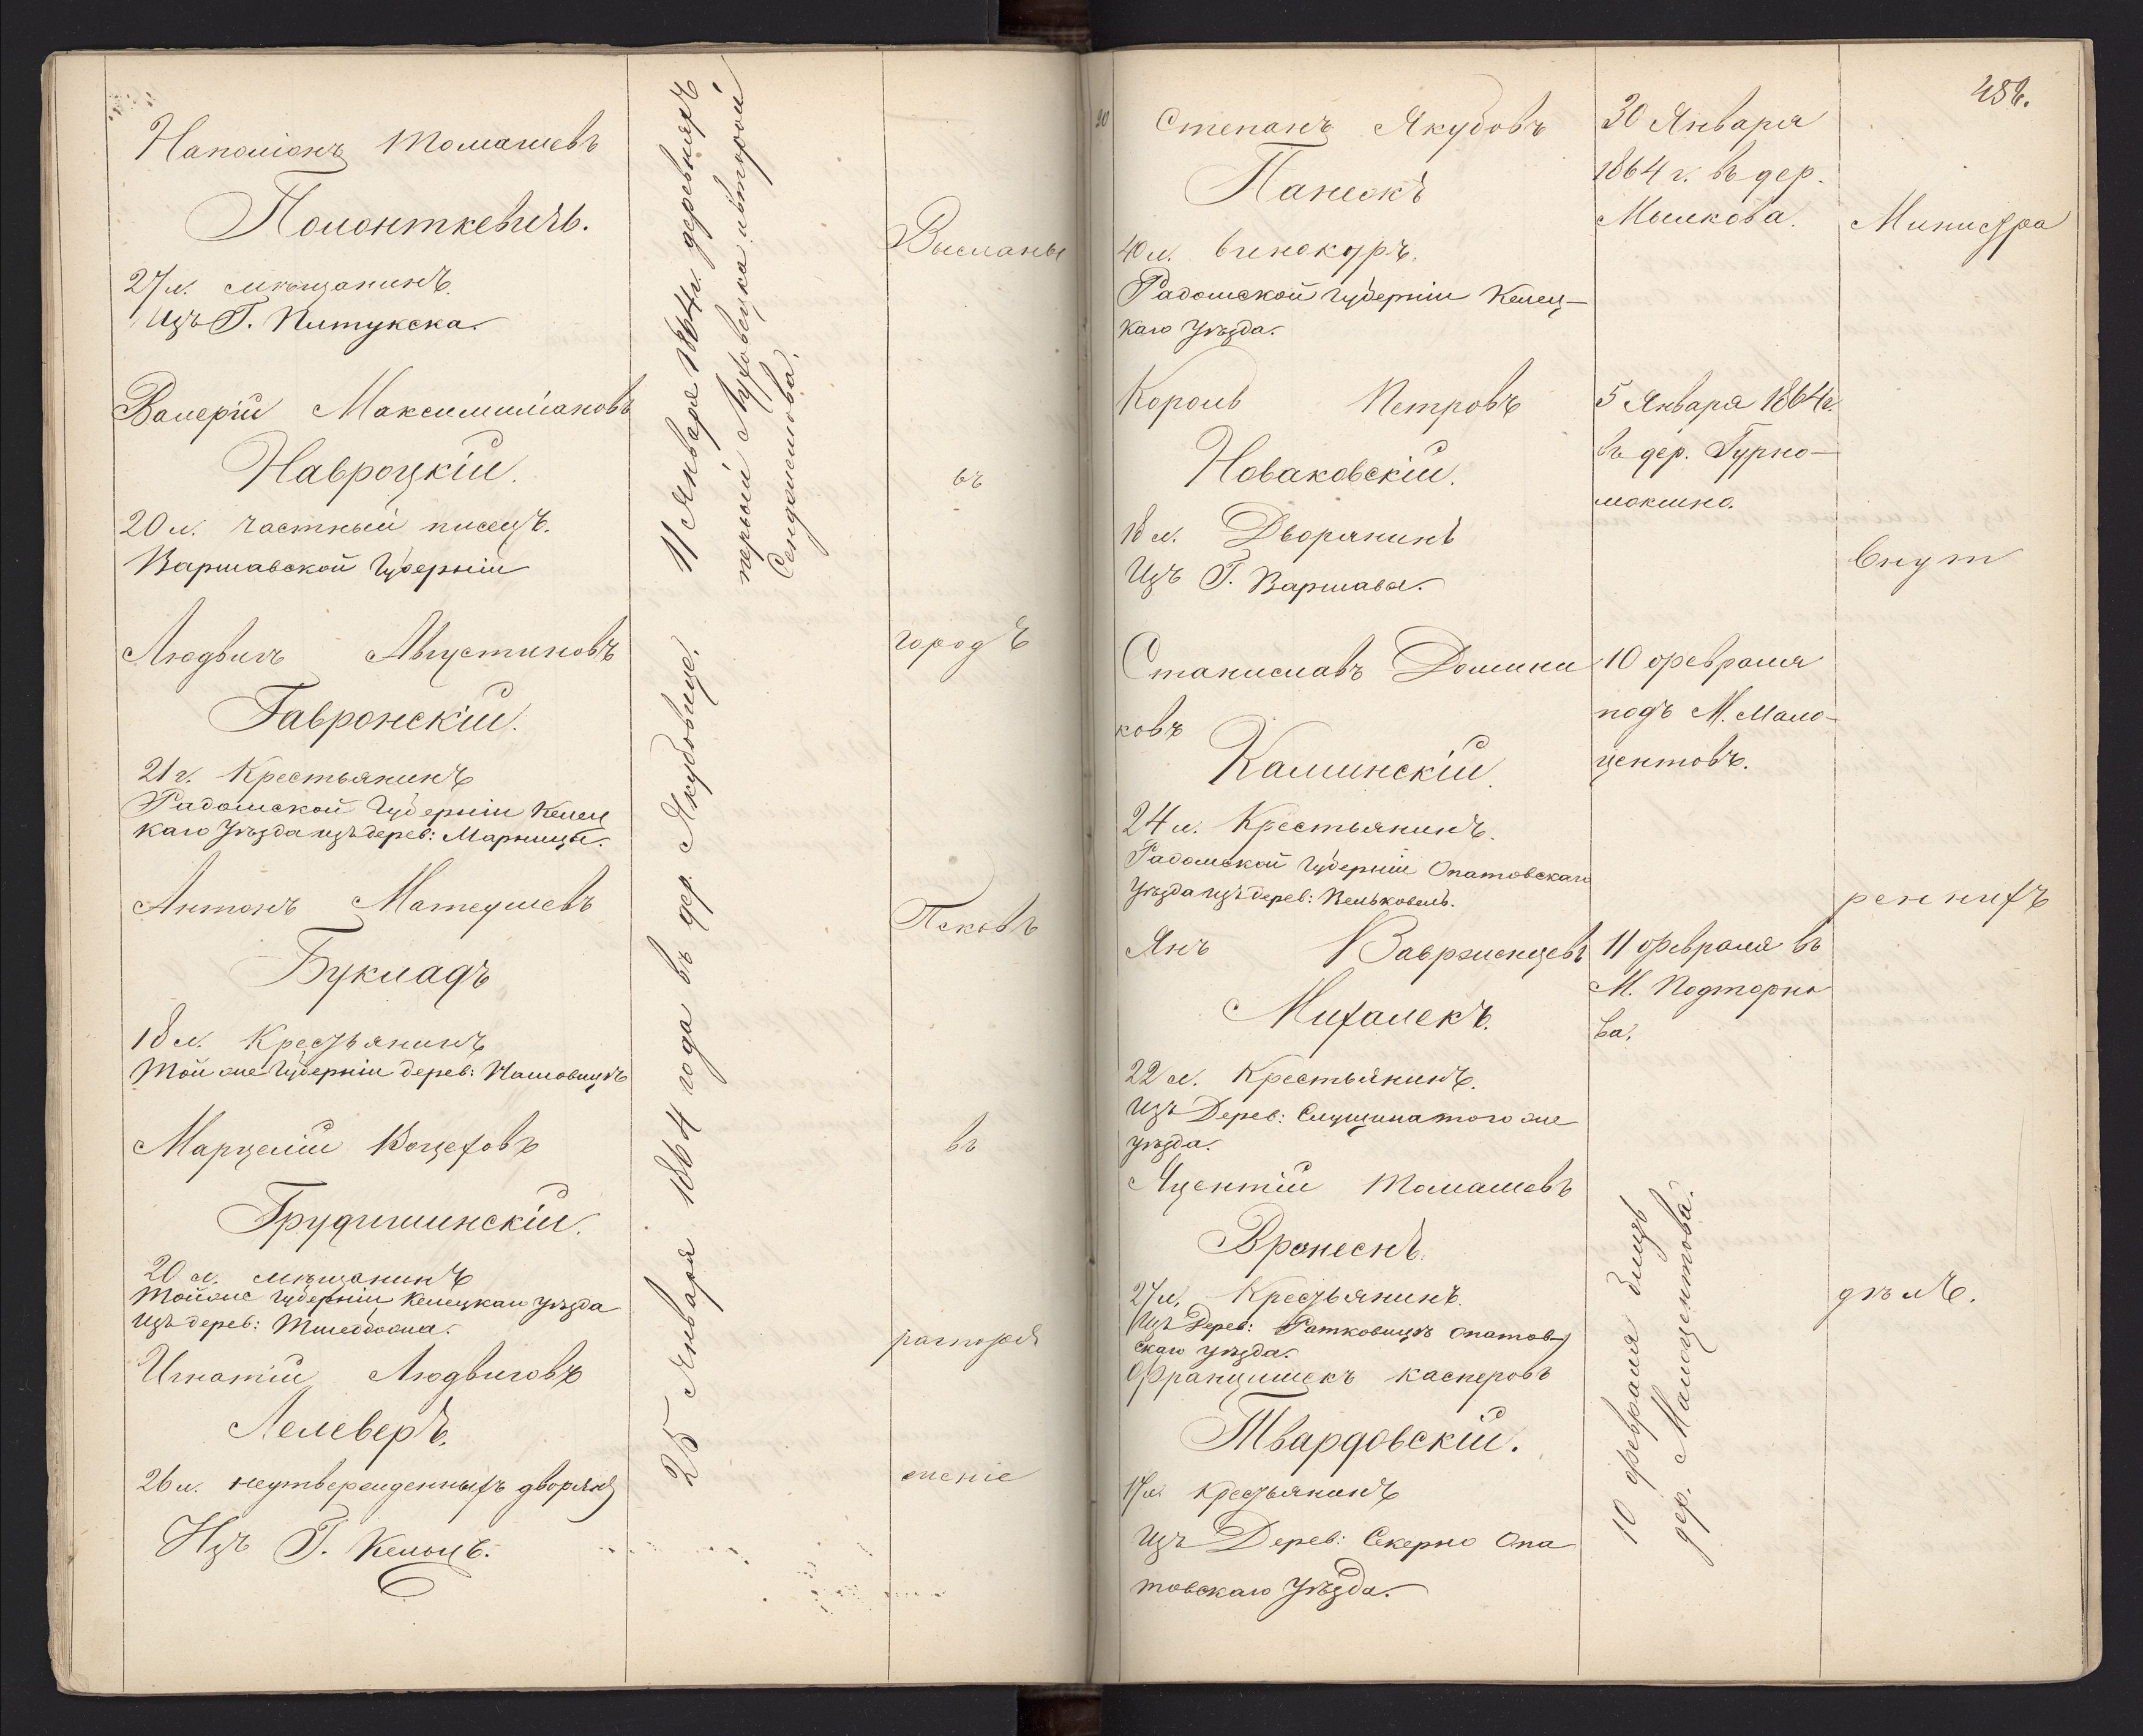 Наполіонъ Томашевъ
Полонткевичъ.
27 л. мѣщанинъ
Изъ Г.
Валерій Максимиліановъ
Навроцкій.
20 л. частный писецъ.
Варшавской Губерніи
Людвигъ Августиновъ
Гавронскій.
21 г. Крестьянинъ
Радомской Губерніи Келец
каго Уѣзда изъ дерев:
Антонъ Матеушевъ
Букладъ
18 л. Крестьянинъ
Той же Губерніи дерев:
Марцелій Войцеховъ
20 л. мѣщанинъ
Той же Губерніи Келецкаго Уѣзда
Изъ дерев:
Игнатій Людвиговъ
Лелеверъ.
26 л. неутвержденныхъ дворянъ
Изъ Г. Кельцъ.
11 Января 1864 г. деревняхъ
первый и второй
Сендомешова.
25 Января 1864 года въ дер. Якубовице.
Высланы
въ
городъ
Псковъ
въ
распоря
женіе
20
482.
Степанъ Якубовъ
Панекъ
40 л. винокуръ.
Радомской Губерніи Келец-
каго Уѣзда.
30 Января
1864 г. въ дер.
Мылкова.
Министра
Король Петровъ
Новаковскій.
18 л. Дворянинъ
Изъ Г. Варшавы.
5 Января 1864 г.
въ дер. Гурно-
Внут
Станиславъ Домини
ковъ
Каминскій.
24 л. Крестьянинъ.
Радомской Губерніи Опатовскаго
Уѣзда изъ дерев:
10 февраля
подъ М. Мало-
центовъ.
реннихъ
Янъ Вавржонцевъ
Михалекъ.
22 л. Крестьянинъ.
Изъ Дерев: того же
уѣзда.
11 февраля въ
М. Подторно
ва.
Яцентій Томашевъ
27 л. Крестьянинъ.
Изъ Дерев: Ратковицъ Опатов-
скаго уѣзда.
Францишекъ Касперовъ
Твардовскій.
17 л. Крестьянинъ
Изъ Дерев: Секерно Опа
товскаго Уѣзда.
10 февраля близъ
дер. Малоцентова.
дѣлъ.